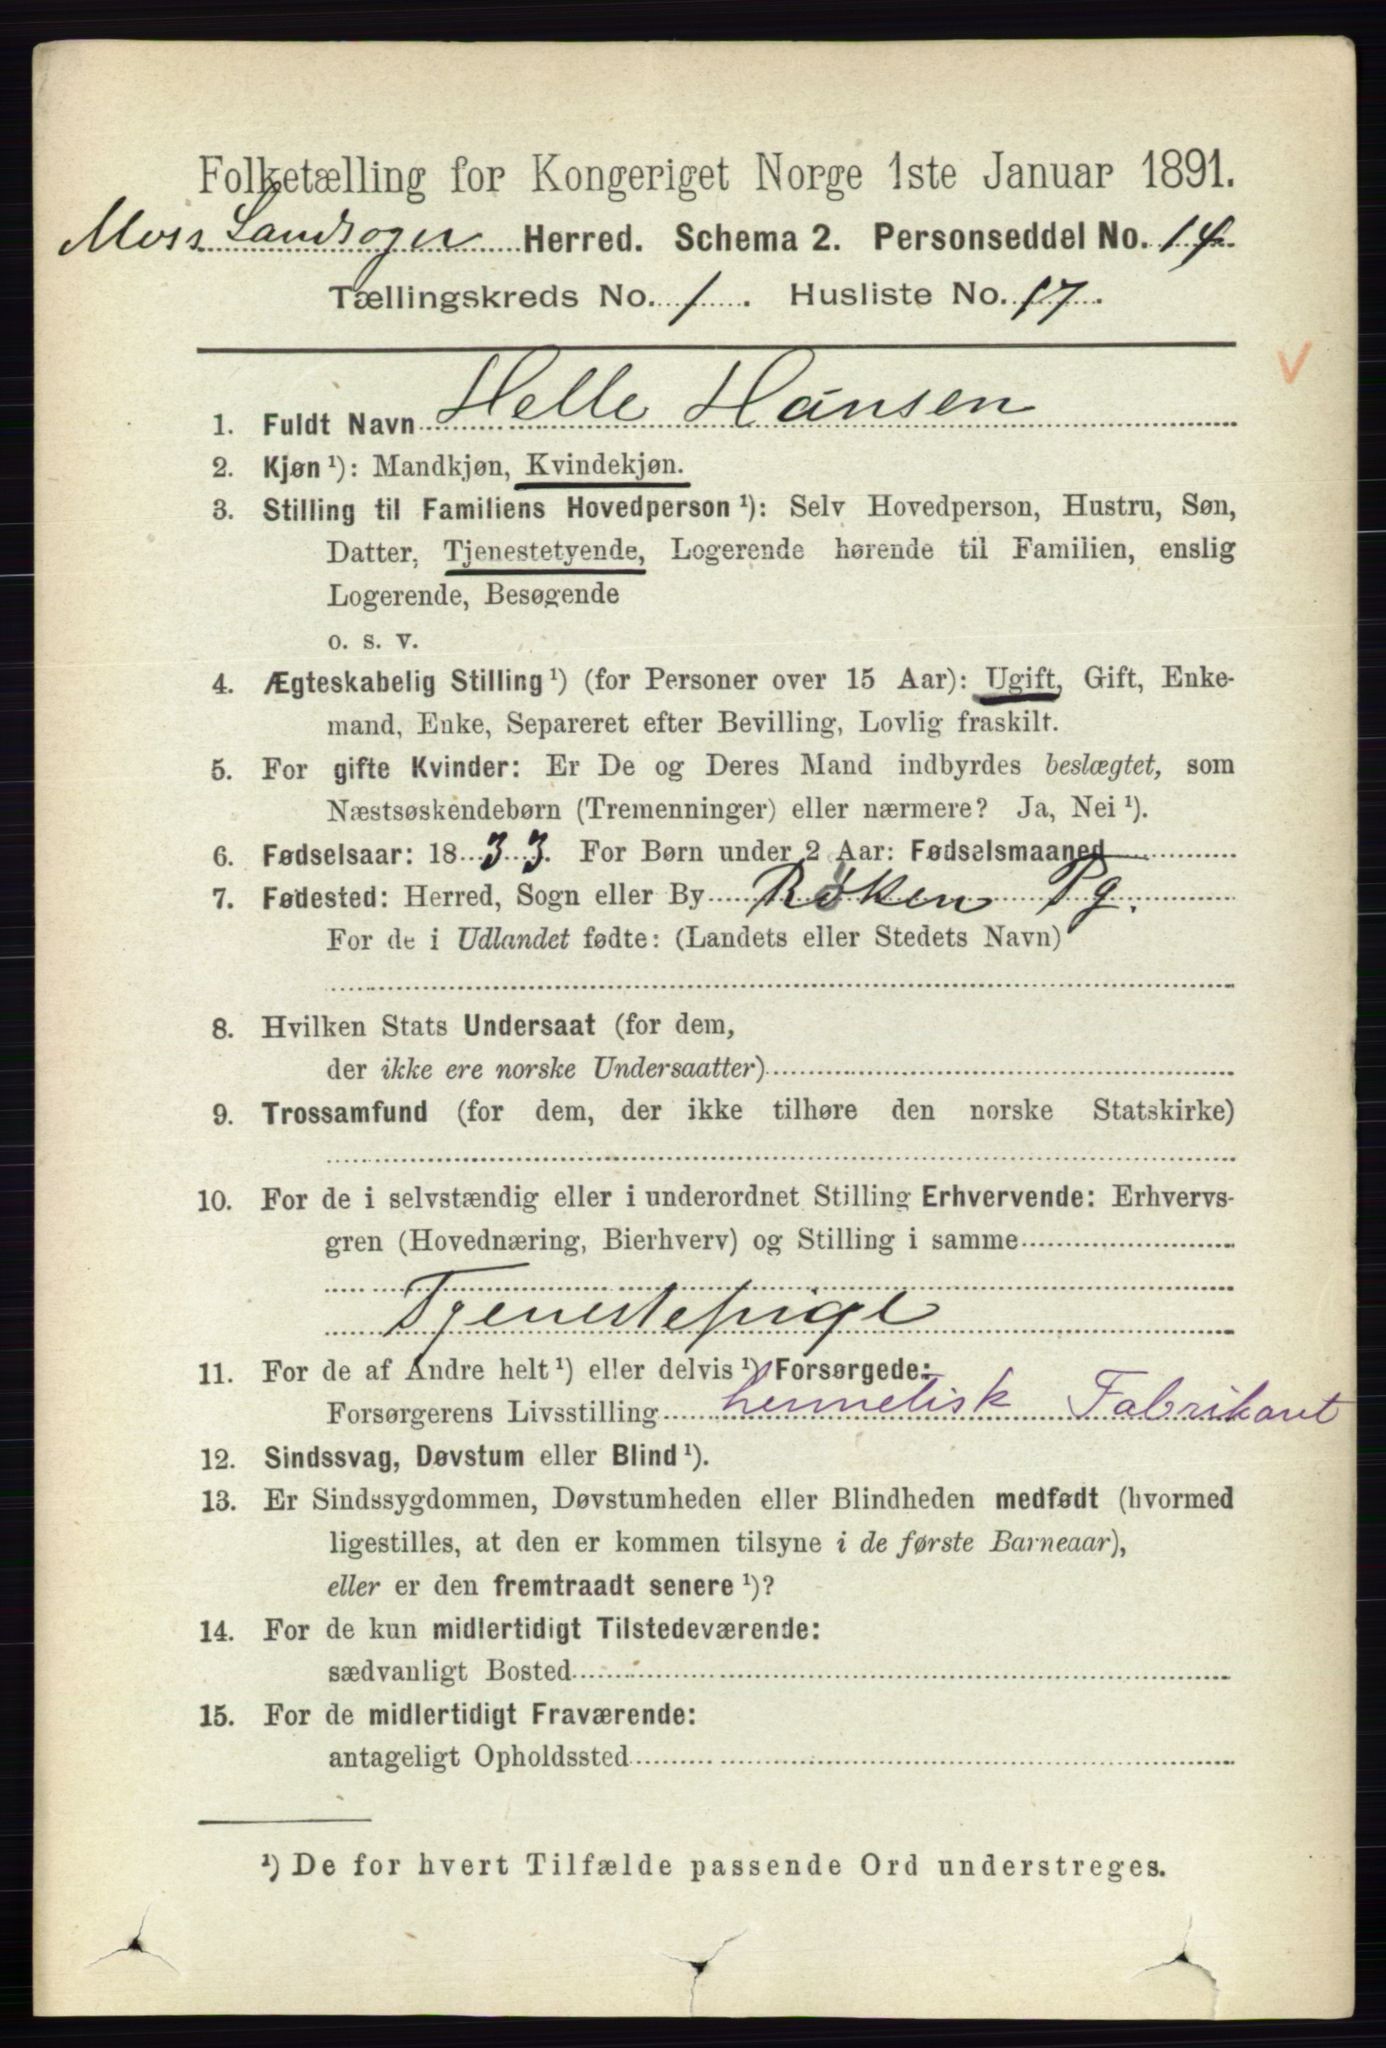 Folketælling for Kongeriget Norge 1ste Januar 1891.
Moss Landsogn Herred. Schema 2. Personseddel No. 14.
Tællingskreds No. 1. Husliste No. 17.
1. Fuldt Navn Helle Hansen
2. Kjøn ¹): Mandkjøn, Kvindekjøn.
3. Stilling til Familiens Hovedperson ¹): Selv Hovedperson, Hustru, Søn,
Datter, Tjenestetyende, Logerende hørende til Familien, enslig
Logerende, Besøgende
o. s. v.
4. Ægteskabelig Stilling ¹) (for Personer over 15 Aar): Ugift, Gift, Enke-
mand, Enke, Separeret efter Bevilling, Lovlig fraskilt.
5. For gifte Kvinder: Er De og Deres Mand indbyrdes beslægtet, som
Næstsøskendebørn (Tremenninger) eller nærmere? Ja, Nei ¹).
6. Fødselsaar: 1833. For Børn under 2 Aar: Fødselsmaaned
7. Fødested: Herred, Sogn eller By Røken Pg.
For de i Udlandet fødte: (Landets eller Stedets Navn)
8. Hvilken Stats Undersaat (for dem,
der ikke ere norske Undersaatter)
9. Trossamfund (for dem, der ikke tilhøre den norske Statskirke)
10. For de i selvstændig eller i underordnet Stilling Erhvervende: Erhvervs-
gren (Hovednæring, Bierhverv) og Stilling i samme
Tjenestepige
11. For de af Andre helt ¹) eller delvis ¹) Forsørgede:
Forsørgerens Livsstilling hermetisk Fabrikant
12. Sindssvag, Døvstum eller Blind ¹).
13. Er Sindssygdommen, Døvstumheden eller Blindheden medfødt (hvormed
ligestilles, at den er kommen tilsyne i de første Barneaar),
eller er den fremtraadt senere ¹)?
14. For de kun midlertidigt Tilstedeværende:
sædvanligt Bosted
15. For de midlertidigt Fraværende:
antageligt Opholdssted
¹) De for hvert Tilfælde passende Ord understreges.